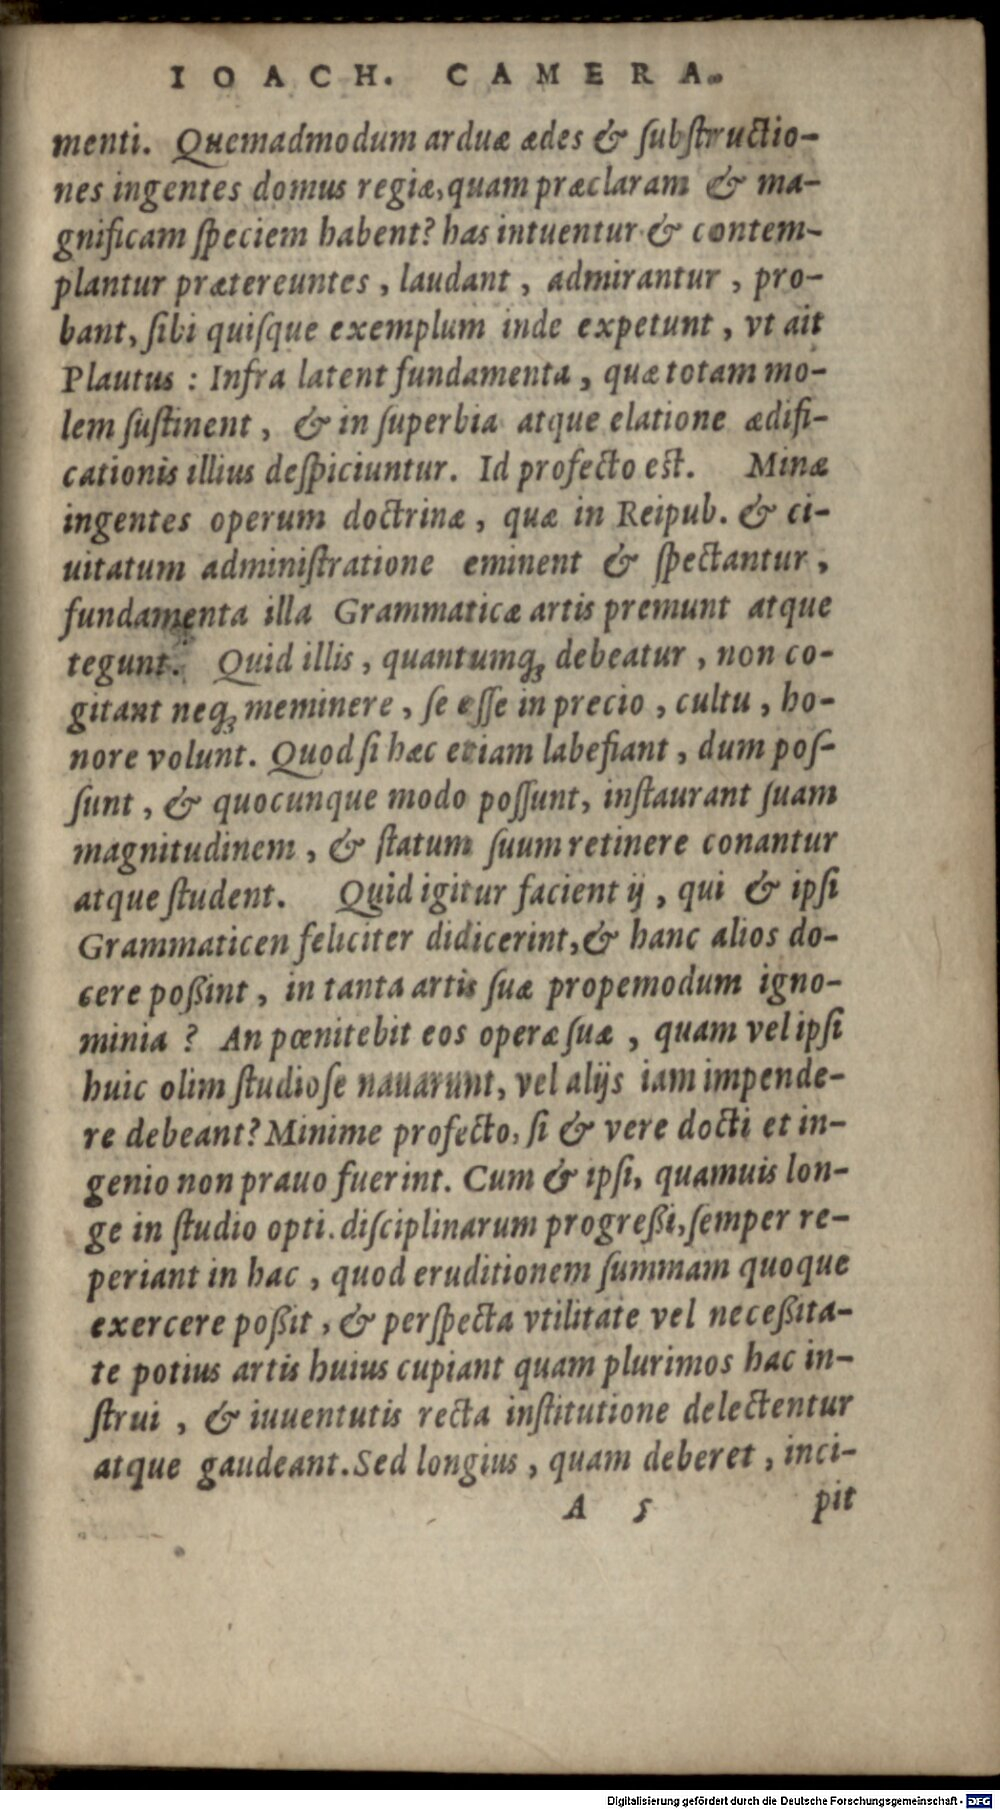 IOACH. CAMERA.
menti. Quemadmodum arduæ ædes & ſubſtructio-
nes ingentes domus regiæ, quam præclaram & ma-
gnificam ſpeciem habent? has intuentur & contem-
plantur prætereuntes, laudant, admirantur, pro-
bant, ſibi quiſque exemplum inde expetunt, vt ait
Plautus: Infra latent fundamenta, quæ totam mo-
lem ſuſtinent, & in ſuperbia atque elatione ædifi-
cationis illius deſpiciuntur. Id profecto est. Minæ
ingentes operum doctrinæ, quæ in Reipub. & ci-
uitatum adminiſtratione eminent & ſpectantur,
fundamenta illa Grammaticæ artis premunt atque
tegunt. Quid illis, quantumq́ꝫ debeatur, non co-
gitant neqꝫ meminere, ſe eſſe in precio, cultu, ho-
nore volunt. Quod ſi hæc etiam labefiant, dum poſ-
ſunt, & quocunque modo poſſunt, inſtaurant ſuam
magnitudinem, & ſtatum ſuum retinere conantur
atque ſtudent. Quid igitur facient ij, qui & ipſi
Grammaticen feliciter didicerint, & hanc alios do-
cere poßint, in tanta artis ſuæ propemodum igno-
minia? An pœnitebit eos operæ ſuæ, quam vel ipſi
huic olim ſtudioſe nauarunt, vel alijs iam impende-
re debeant? Minime profecto, ſi & vere docti et in-
genio non prauo fuerint. Cum & ipſi, quamuis lon-
ge in ſtudio opti. diſciplinarum progreßi, ſemper re-
periant in hac, quod eruditionem ſummam quoque
exercere poßit, & perſpecta vtilitate vel neceßita-
te potius artis huius cupiant quam plurimos hac in-
ſtrui, & iuuentutis recta inſtitutione delectentur
atque gaudeant. Sed longius, quam deberet, inci-
A 5 pit
Digitalisierung gefördert durch die Deutsche Forschungsgemeinschaft - DFG